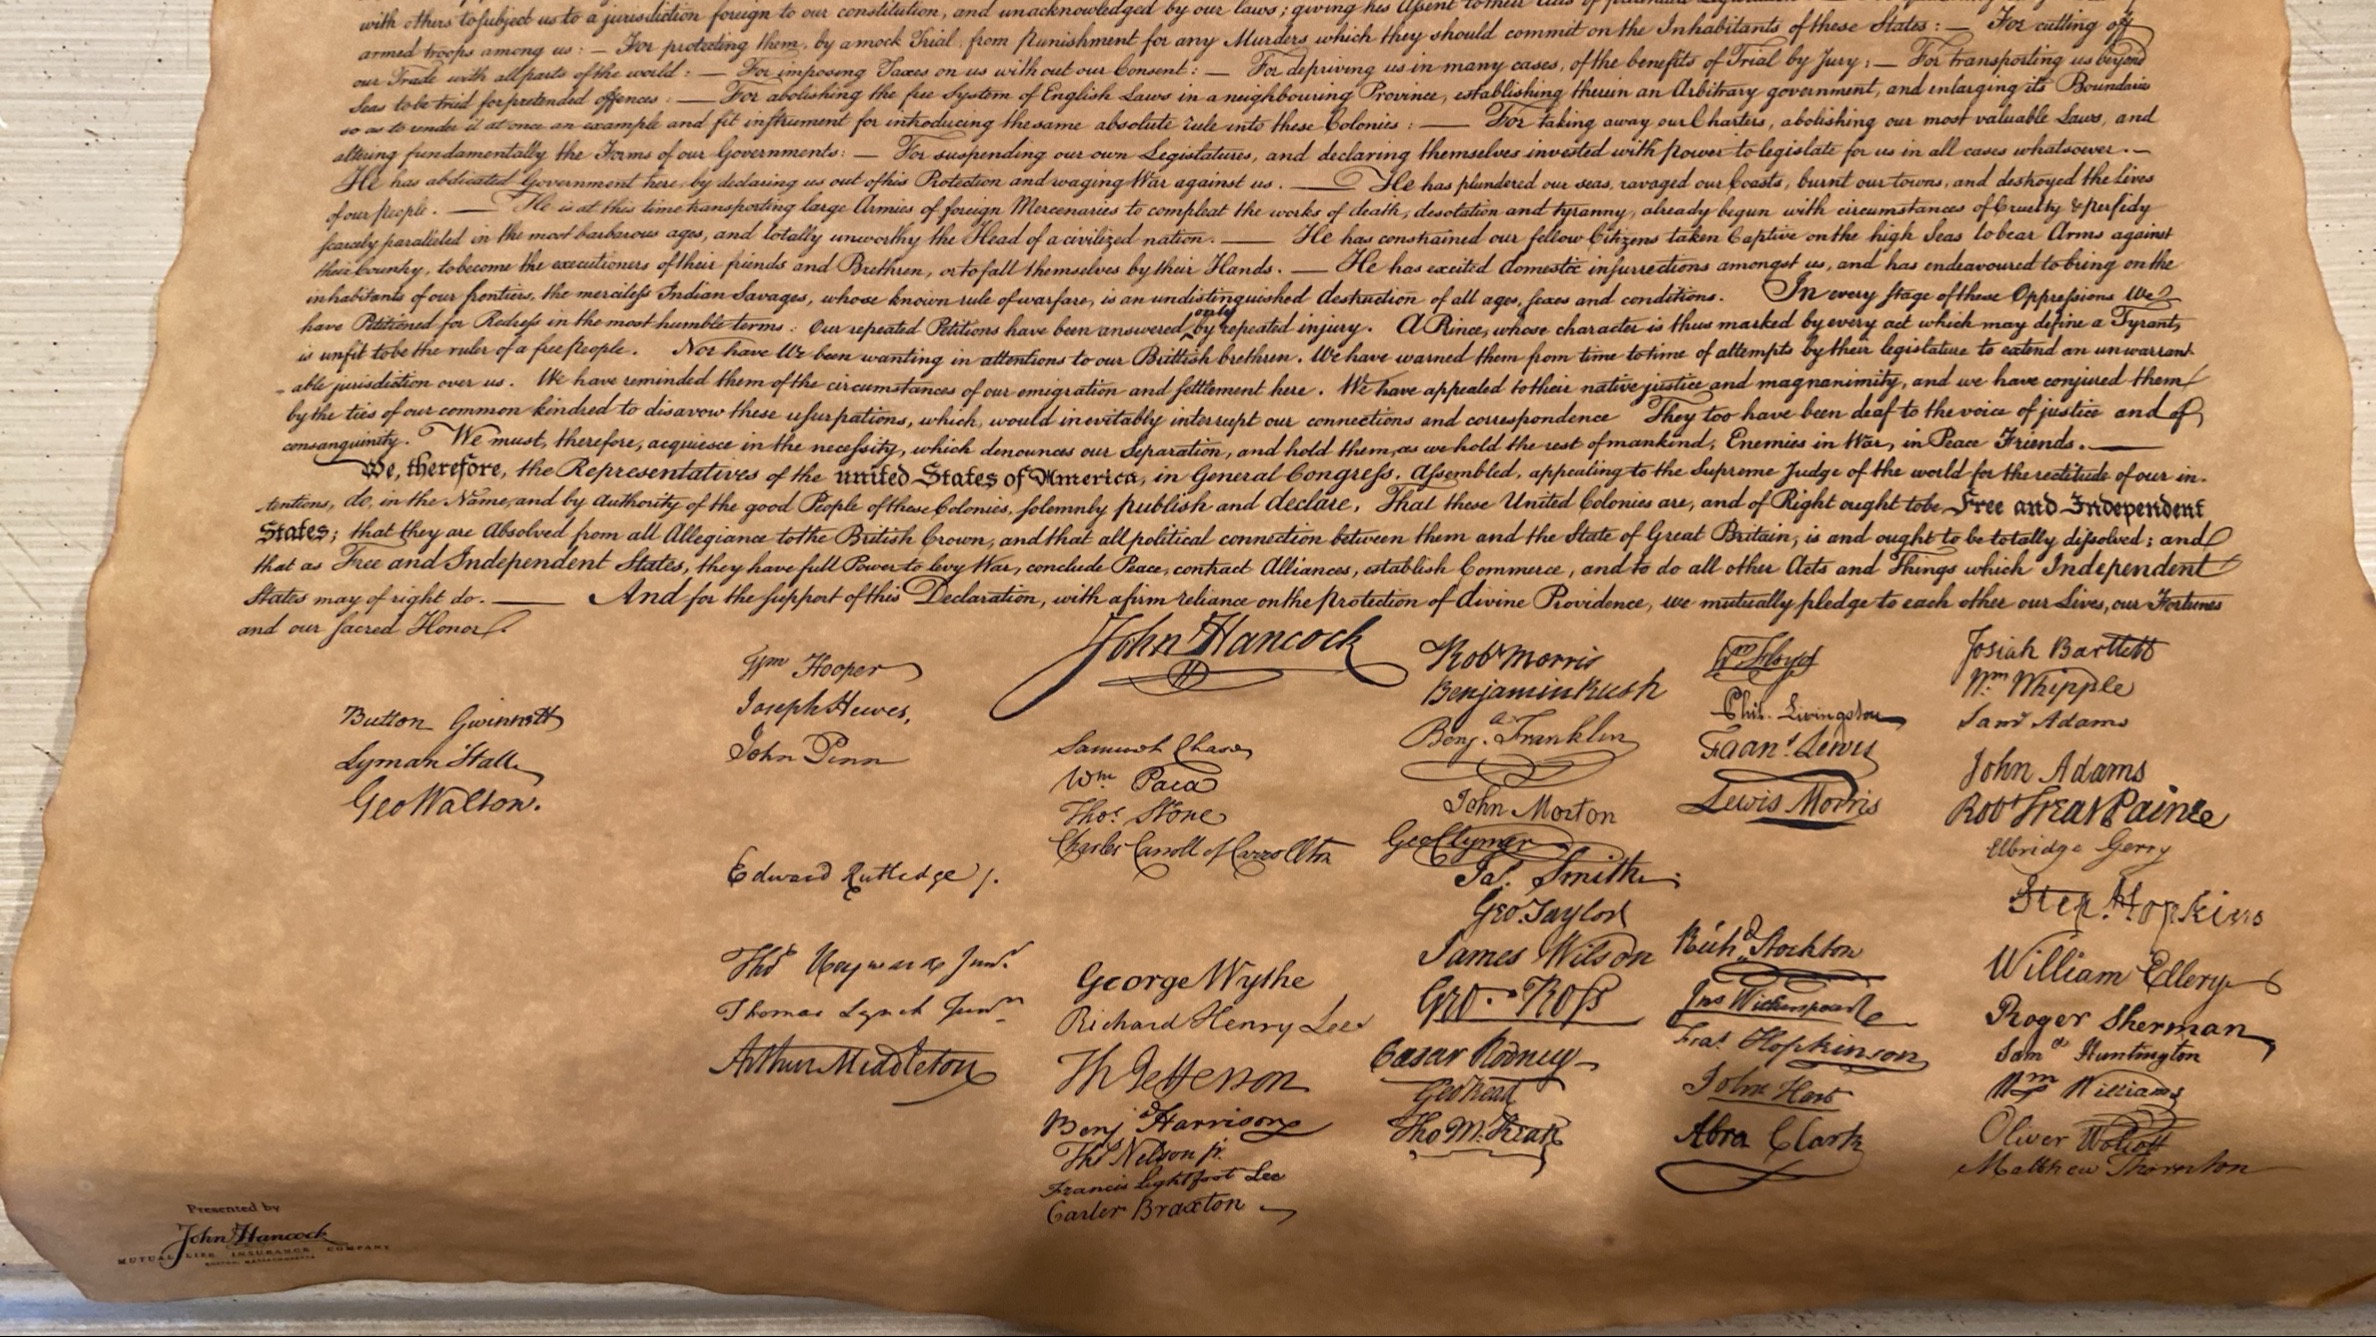 with others to subject us to a jurisdiction foreign to our constitution, and unacknowledged by our laws; giving his Assent to their Acts of
armed troops among us: — For protecting them, by a mock Trial, from Punishment for any Murders which they should commit on the Inhabitants of these States: — For cutting off
our Trade with all parts of the world: — For imposing Taxes on us without our Consent: — For depriving us in many cases, of the benefits of Trial by Jury; — For transporting us beyond
Seas to be tried for pretended offences: — For abolishing the free System of English Laws in a neighbouring Province, establishing therein an Arbitrary government, and enlarging its Boundaries
so as to render it at once an example and fit instrument for introducing the same absolute rule into these Colonies: — For taking away our Charters, abolishing our most valuable Laws, and
altering fundamentally the Forms of our Governments: — For suspending our own Legislatures, and declaring themselves invested with power to legislate for us in all cases whatsoever. —
He has abdicated Government here, by declaring us out of his Protection and waging War against us. — He has plundered our seas, ravaged our Coasts, burnt our towns, and destroyed the Lives
of our people. — He is at this time transporting large Armies of foreign Mercenaries to compleat the works of death, desolation and tyranny, already begun with circumstances of Cruelty & perfidy
scarcely paralleled in the most barbarous ages, and totally unworthy the Head of a civilized nation. — He has constrained our fellow Citizens taken Captive on the high Seas to bear Arms against
their Country, to become the executioners of their friends and Brethren, or to fall themselves by their Hands. — He has excited domestic insurrections amongst us, and has endeavoured to bring on the
inhabitants of our frontiers, the merciless Indian Savages, whose known rule of warfare, is an undistinguished destruction of all ages, sexes and conditions. In every stage of these Oppressions We
have Petitioned for Redress in the most humble terms: Our repeated Petitions have been answered only by repeated injury. A Prince, whose character is thus marked by every act which may define a Tyrant,
is unfit to be the ruler of a free people. Nor have We been wanting in attentions to our Brittish brethren. We have warned them from time to time of attempts by their legislature to extend an unwarrant-
-able jurisdiction over us. We have reminded them of the circumstances of our emigration and settlement here. We have appealed to their native justice and magnanimity, and we have conjured them
by the ties of our common kindred to disavow these usurpations, which, would inevitably interrupt our connections and correspondence They too have been deaf to the voice of justice and of
consanguinity. We must, therefore, acquiesce in the necessity, which denounces our Separation, and hold them, as we hold the rest of mankind, Enemies in War, in Peace Friends. —
We, therefore, the Representatives of the united States of America, in General Congress, Assembled, appealing to the Supreme Judge of the world for the rectitude of our in-
tentions, do, in the Name, and by Authority of the good People of these Colonies, solemnly publish and declare, That these United Colonies are, and of Right ought to be Free and Independent
States; that they are Absolved from all Allegiance to the British Crown, and that all political connection between them and the State of Great Britain, is and ought to be totally dissolved; and
that as Free and Independent States, they have full Power to levy War, conclude Peace, contract Alliances, establish Commerce, and to do all other Acts and Things which Independent
States may of right do. — And for the support of this Declaration, with a firm reliance on the Protection of divine Providence, we mutually pledge to each other our Lives, our Fortunes
and our sacred Honor.
Button Gwinnett
Lyman Hall
Geo Walton.
Wm Hooper
Joseph Hewes,
John Penn
Edward Rutledge /.
Thos Heyward Junr.
Thomas Lynch Junr.
Arthur Middleton
John Hancock
Samuel Chase
Wm. Paca
Thos. Stone
Charles Carroll of Carrollton
George Wythe
Richard Henry Lee
Th Jefferson
Benj Harrison
Thos Nelson jr.
Francis Lightfoot Lee
Carter Braxton
Robt Morris
Benjamin Rush
Benj. Franklin
John Morton
Geo Clymer
Jas. Smith
Geo. Taylor
James Wilson
Geo. Ross
Caesar Rodney
Geo Read
Tho M:Kean
Wm Floyd
Phil. Livingston
Frans. Lewis
Lewis Morris
Richd. Stockton
Jno Witherspoon
Fras. Hopkinson
John Hart
Abra Clark
Josiah Bartlett
Wm. Whipple
Saml Adams
John Adams
Robt Treat Paine
Elbridge Gerry
Step. Hopkins
William Ellery
Roger Sherman
Saml Huntington
Wm Williams
Oliver Wolcott
Matthew Thornton
Presented by
John Hancock
MUTUAL LIFE INSURANCE COMPANY
BOSTON, MASSACHUSETTS